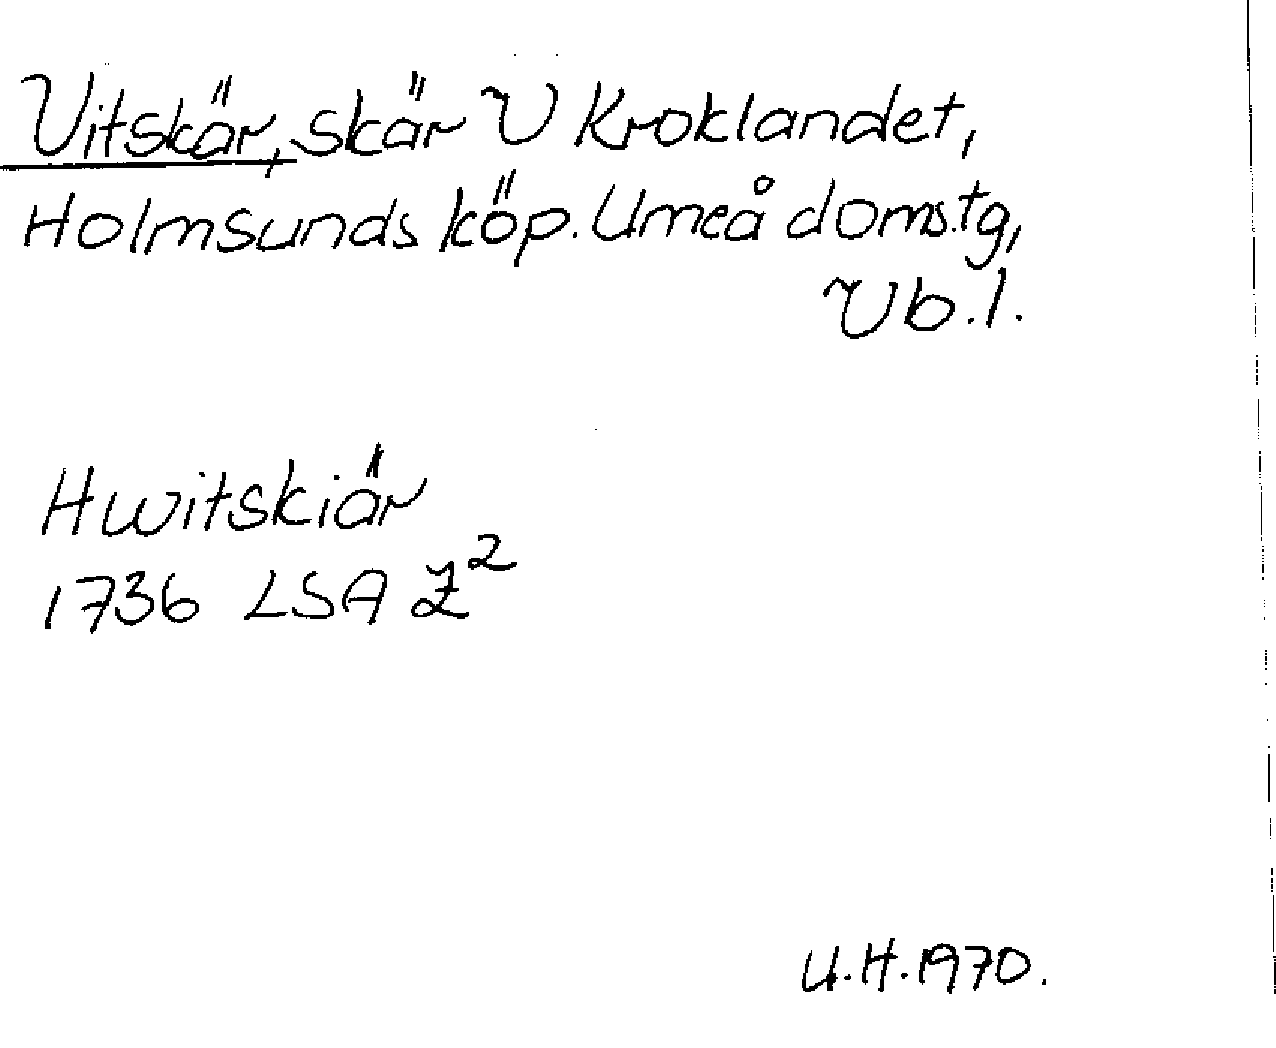 Vitskär, skär V Kroklandet,
Holmsunds köp. Umeå doms.tg,
Vb. l.
Hwitskiär
1736 LSA Z²
U.H. 1970.